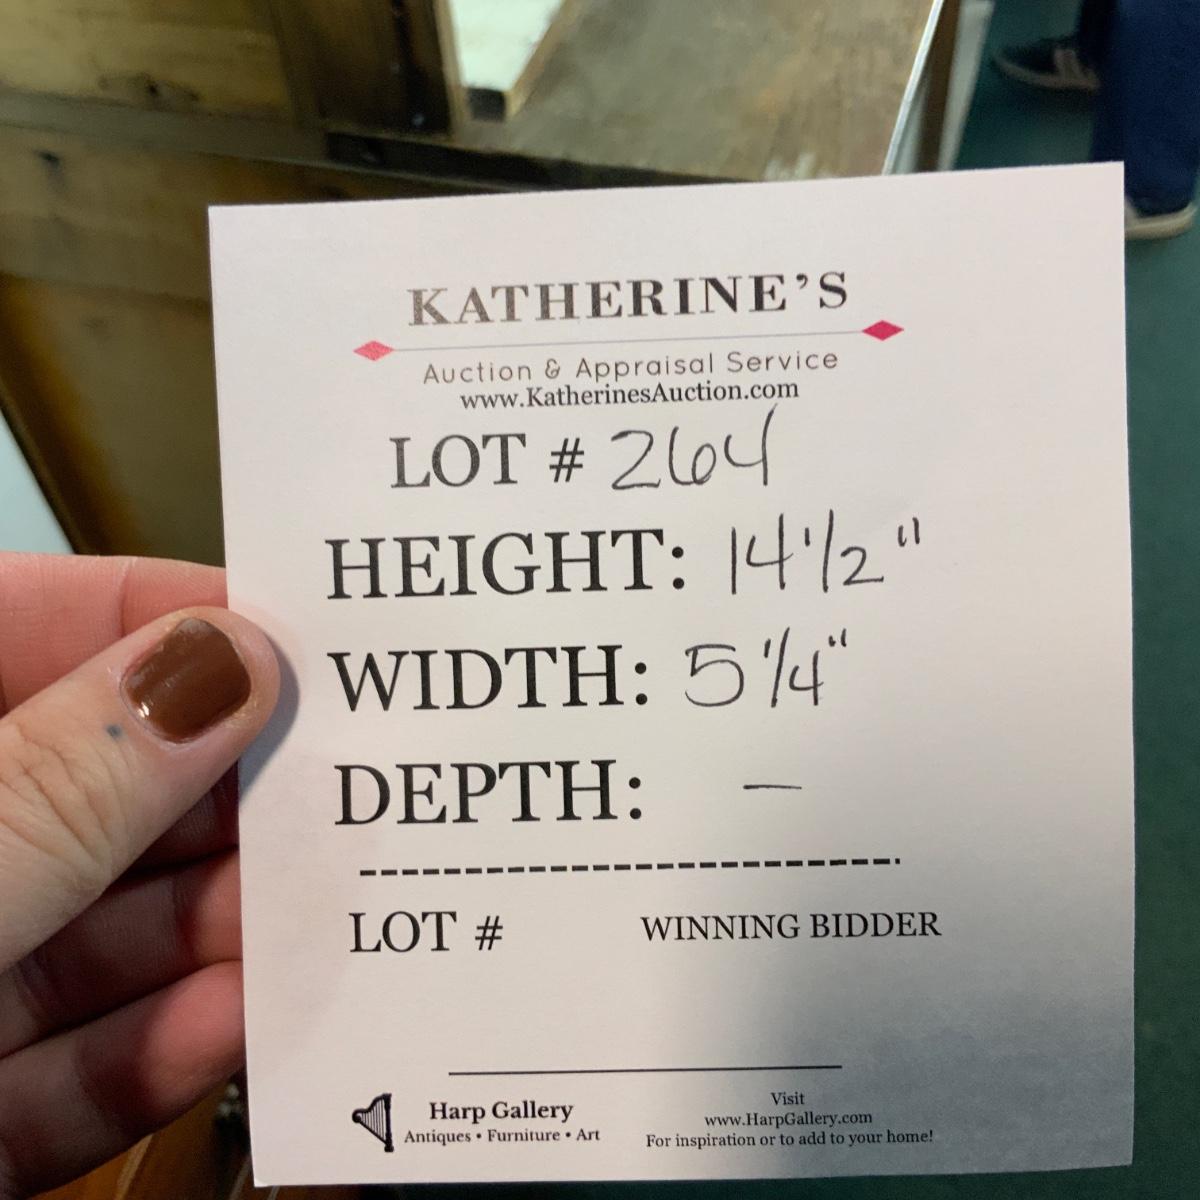 KATHERINE'S
Auction & Appraisal Service
www.KatherinesAuction.com
LOT # 264
HEIGHT: 14 1/2"
WIDTH: 5 1/4"
DEPTH: —
LOT # WINNING BIDDER
Harp Gallery
Antiques • Furniture • Art
Visit
www.HarpGallery.com
For inspiration or to add to your home!